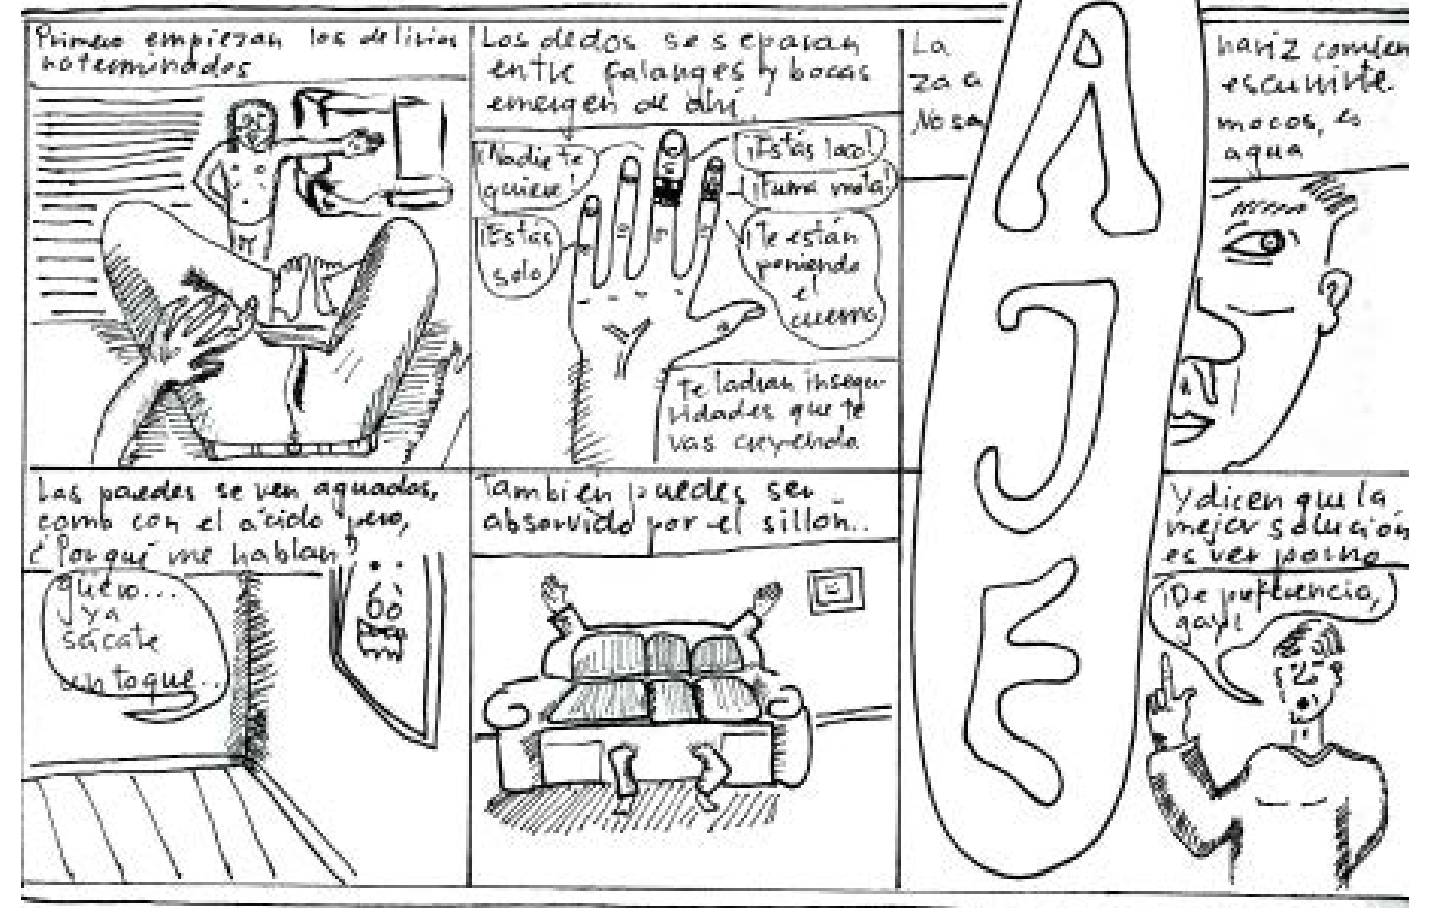 Primero empiezan los delirios
noterminados
Los dedos se separan
entre falanges y bocas
emergen de ahí
¡Nadie te
quiere!
¡Estás loco!
¡Fuma mota!
¡Estás
solo!
¡Te están
poniendo
el
cuerno
Te ladran insegu-
ridades que te
vas creyendo
La nariz comien
za a escurrirte.
No sa mocos, es
agua
AJE
Las paredes se ven aguadas,
como con el ácido pero,
¿Por qué me hablan?
güero...
ya
sácate
un toque..
También puedes ser
absorvido por el sillón...
Y dicen que la
mejor solución
es ver porno
¡De preferencia,
gay!